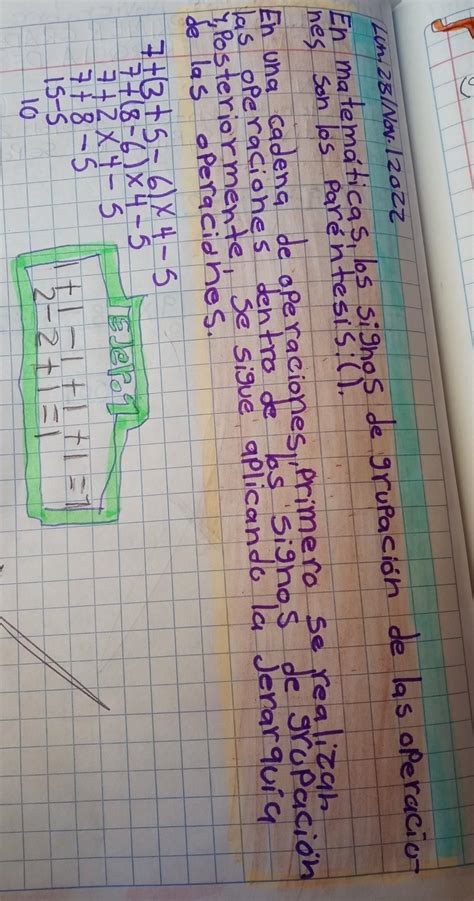 Lun.28/Nov./2022
En matemáticas, los signos de grupación de las operacio-
nes son los paréntesis:().
En una cadena de operaciones, primero se realizan
las operaciones dentro de los signos de grupación
y, posteriormente, se sigue aplicando la jerarquía
de las operaciones.
7+(3+5-6)×4-5
7+(8-6)×4-5
7+2×4-5
7+8-5
15-5
10
1+1-1+1+1=1
2-2+1=1